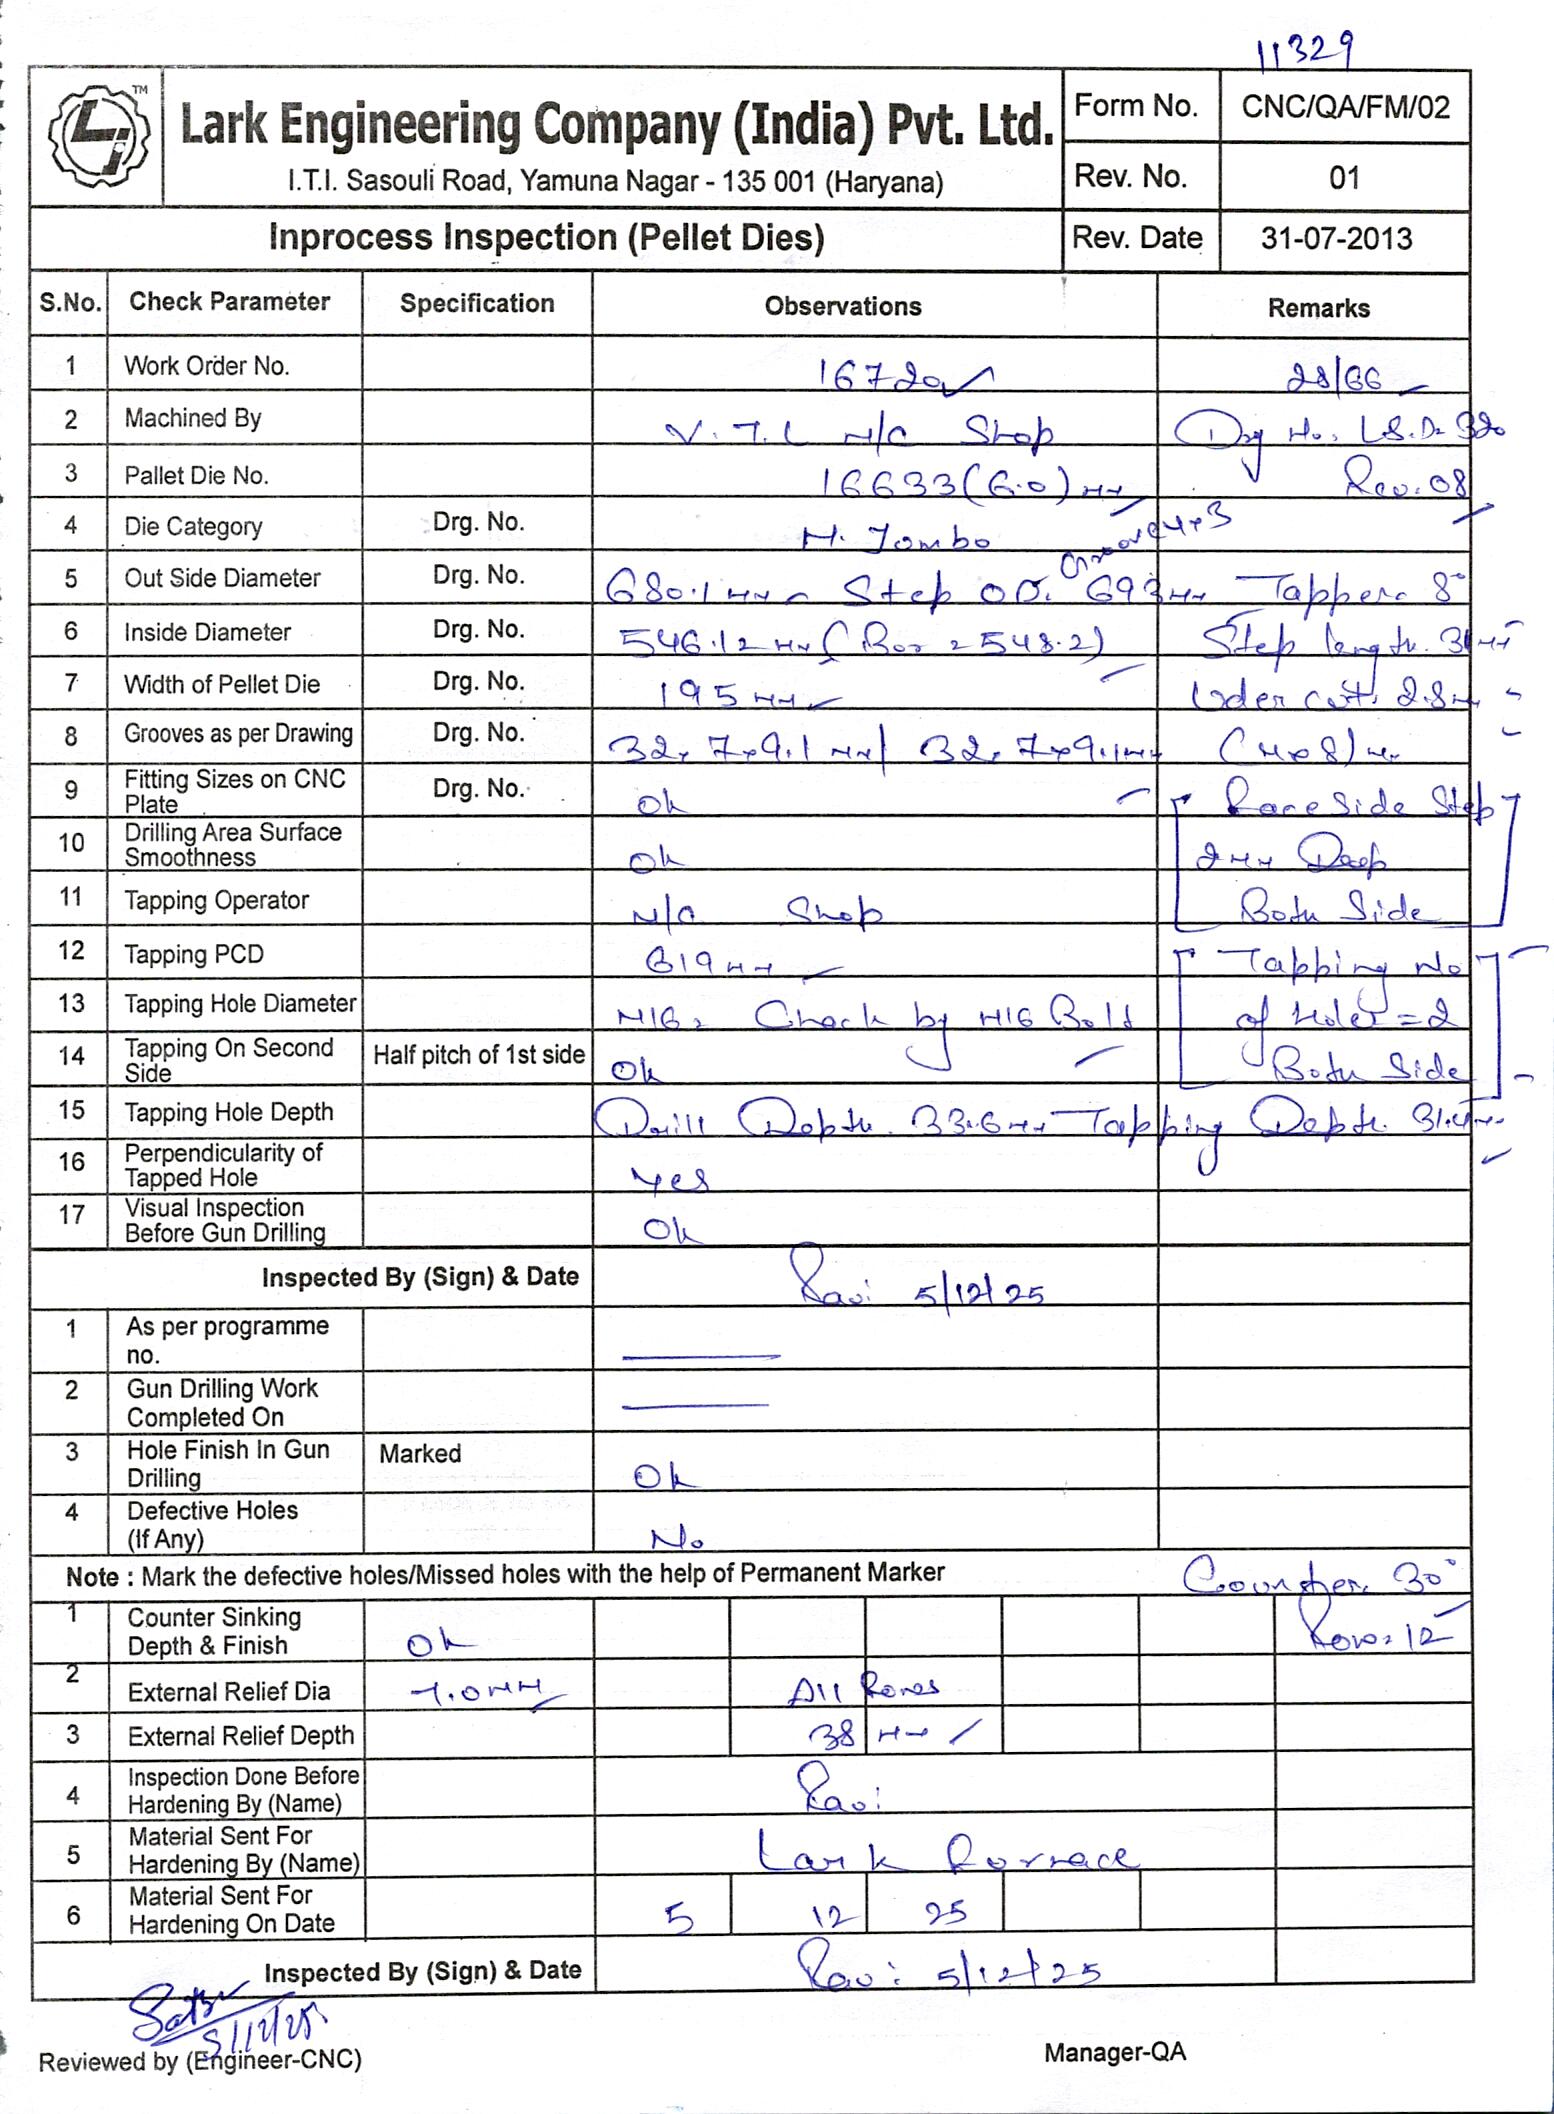 11329
TM
Lark Engineering Company (India) Pvt. Ltd.
I.T.I. Sasouli Road, Yamuna Nagar - 135 001 (Haryana)
Form No. CNC/QA/FM/02
Rev. No. 01
Inprocess Inspection (Pellet Dies)
Rev. Date 31-07-2013
S.No. Check Parameter Specification Observations Remarks
1 Work Order No. 16720 28/66
2 Machined By V.T.L N/C Shop Drg No. LS.D. 320
3 Pallet Die No. 16633(6.0) mm Rev. 08
4 Die Category Drg. No. H. Jombo Groove 4x3
5 Out Side Diameter Drg. No. 680.1 mm Step OD. 693mm Tapper. 8°
6 Inside Diameter Drg. No. 546.12 mm (Bor = 548.2) Step length. 31mm
7 Width of Pellet Die Drg. No. 195 mm Uder cut. 2.8mm
8 Grooves as per Drawing Drg. No. 32, 7x9.1 mm/ 32, 7x9.1mm (4x8) mm
9 Fitting Sizes on CNC Plate Drg. No. Ok Race Side Step
10 Drilling Area Surface Smoothness Ok 2mm Deep
11 Tapping Operator N/C Shop Both Side
12 Tapping PCD 619mm Tapping No
13 Tapping Hole Diameter M16, Check by M16 Bolt of Holes = 2
14 Tapping On Second Side Half pitch of 1st side Ok Both Side
15 Tapping Hole Depth Drill Depth. 33.6mm Tapping Depth. 31.4mm
16 Perpendicularity of Tapped Hole Yes
17 Visual Inspection Before Gun Drilling Ok
Inspected By (Sign) & Date Ravi 5/12/25
1 As per programme no.
2 Gun Drilling Work Completed On
3 Hole Finish In Gun Drilling Marked Ok
4 Defective Holes (If Any) No
Note : Mark the defective holes/Missed holes with the help of Permanent Marker Counter. 30°
1 Counter Sinking Depth & Finish Ok Row = 12
2 External Relief Dia 7.0mm All Rows
3 External Relief Depth 38 mm
4 Inspection Done Before Hardening By (Name) Ravi
5 Material Sent For Hardening By (Name) Lark Furnace
6 Material Sent For Hardening On Date 5 12 25
Inspected By (Sign) & Date Ravi 5/12/25
5/12/25
Reviewed by (Engineer-CNC) Manager-QA